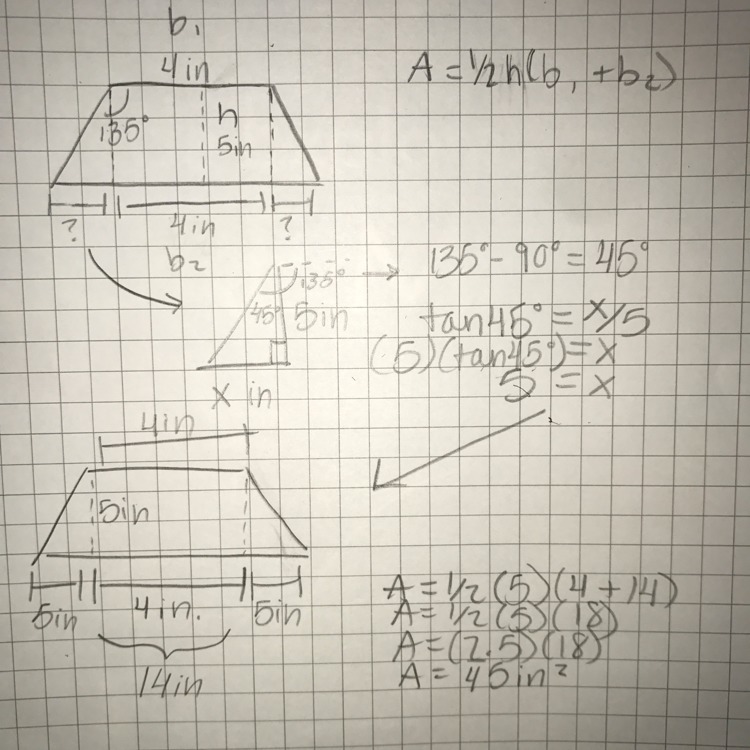 b₁
4in
A = ½h(b₁ + b₂)
135°
h
5in
?
4in
?
b₂
135°
45°
5in
x in
135° - 90° = 45°
tan45° = x/5
(5)(tan45°) = x
5 = x
4in
5in
5in
4in.
5in
14in
A = ½(5)(4 + 14)
A = ½(5)(18)
A = (2.5)(18)
A = 45in²